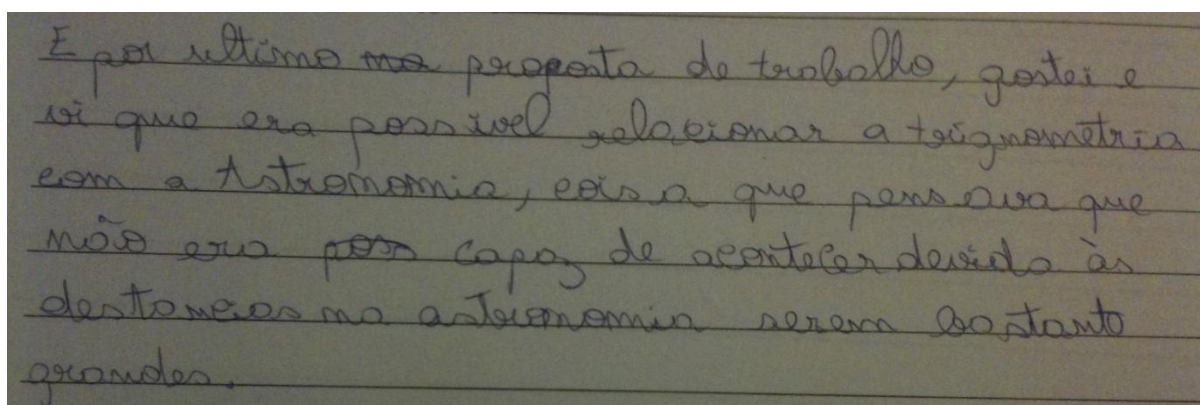 E por ultimo na proposta de trabalho, gostei e
vi que era possivel relacionar a trignometria
com a Astronomia, coisa que pensava que
não era pos capaz de acontecer devido às
destancias na astronomia serem bastante
grandes.